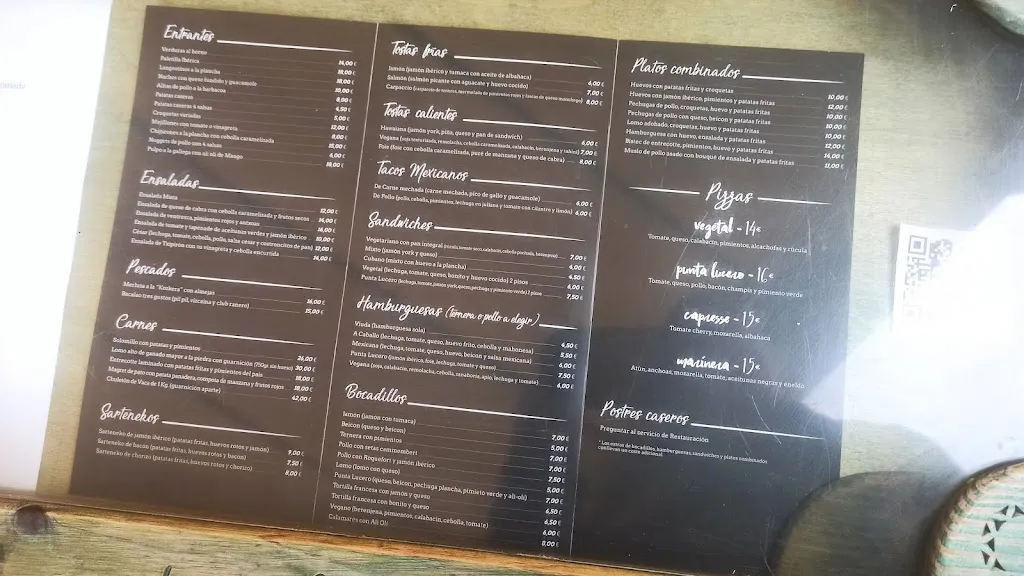 Entrantes
Verduras al horno 14,00 €
Paletilla Ibérica 18,00 €
Langostinos a la plancha 18,00 €
Nachos con queso fundido y guacamole 10,00 €
Alitas de pollo a la barbacoa 8,00 €
Patatas caseras 4,50 €
Patatas caseras 4 salsas 5,00 €
Croquetas variadas 12,00 €
Mejillones con tomate o vinagreta 8,00 €
Chipirones a la plancha con cebolla caramelizada 15,00 €
Nuggets de pollo con 4 salsas 6,00 €
Pulpo a la gallega con ali oli de Mango 18,00 €
Ensaladas
Ensalada Mixta 12,00 €
Ensalada de queso de cabra con cebolla caramelizada y frutos secos 14,00 €
Ensalada de ventresca, pimientos rojos y antxoas 16,00 €
Ensalada de tomate y tapenade de aceitunas verdes y jamón ibérico 10,00 €
César (lechuga, tomate, cebolla, pollo, salsa cesar y costroncitos de pan) 12,00 €
Ensalada de Txipirón con tu vinagreta y cebolla encurtida 14,00 €
Pescados
Merluza a la "Koskera" con almejas 16,00 €
Bacalao tres gustos (pil pil, vizcaina y club ranero) 15,00 €
Carnes
Solomillo con patatas y pimientos 26,00 €
Lomo alto de ganado mayor a la piedra con guarnición (750gr sin hueso) 30,00 €
Entrecote laminado con patatas fritas y pimientos del país 18,00 €
Magret de pato con patata panadera, compota de manzana y frutos rojos 18,00 €
Chuletón de Vaca de 1 Kg (guarnición aparte) 42,00 €
Sartenekos
Sarteneko de jamón ibérico (patatas fritas, huevos rotos y jamón) 9,00 €
Sarteneko de bacón (patatas fritas, huevos rotos y bacón) 7,50 €
Sarteneko de chorizo (patatas fritas, huevos rotos y chorizo) 8,00 €
Tostas frias
Jamón (jamón ibérico y tumaca con aceite de albahaca) 6,00 €
Salmón (salmón picante con aguacate y huevo cocido) 7,00 €
Carpaccio 8,00 €
Tostas calientes
Hawaiana (jamón york, piña, queso y pan de sandwich) 6,00 €
Vegana 7,00 €
Foie (foie con cebolla caramelizada, puré de manzana y queso de cabra) 8,00 €
Tacos Mexicanos
De Carne mechada (carne mechada, pico de gallo y guacamole) 6,00 €
De Pollo (pollo, cebolla, pimientos, lechuga en juliana y tomate con cilantro y limón) 6,00 €
Sandwiches
Vegetariano con pan integral 7,00 €
Mixto (jamón york y queso) 4,00 €
Cubano (mixto con huevo a la plancha) 4,50 €
Vegetal (lechuga, tomate, queso, bonito y huevo cocido) 2 pisos 6,00 €
Punta Lucero (lechuga, tomate, jamón york, queso, pechuga y pimiento verde) 2 pisos 7,50 €
Hamburguesas (ternera o pollo a elegir)
Viuda (hamburguesa sola) 4,50 €
A Caballo (lechuga, tomate, queso, huevo frito, cebolla y mahonesa) 5,50 €
Mexicana (lechuga, tomate, queso, huevo, beicon y salsa mexicana) 6,00 €
Punta Lucero (jamón ibérico, foie, lechuga, tomate y queso) 7,50 €
Vegana (soja, calabacín, remolacha, cebolla, zanahoria, apio, lechuga y tomate) 6,00 €
Bocadillos
Jamón (jamon con tumaca) 7,00 €
Beicon (queso y beicon) 5,00 €
Ternera con pimientos 7,00 €
Pollo con setas camnombert 7,00 €
Pollo con Roquefort y jamón ibérico 7,50 €
Lomo (lomo con queso) 5,00 €
Punta Lucero (queso, beicon, pechuga plancha, pimiento verde y ali-oli) 7,00 €
Tortilla francesa con jamón y queso 6,50 €
Tortilla francesa con bonito y queso 6,50 €
Vegano (berenjena, pimientos, calabacín, cebolla, tomate) 6,00 €
Calamares con Ali Oli 8,00 €
Platos combinados
Huevos con patatas fritas y croquetas 10,00 €
Huevos con jamón ibérico, pimientos y patatas fritas 12,00 €
Pechugas de pollo, croquetas, huevo y patatas fritas 10,00 €
Pechugas de pollo con queso, beicon y patatas fritas 10,00 €
Lomo adobado, croquetas, huevo y patatas fritas 10,00 €
Hamburguesa con huevo, ensalada y patatas fritas 12,00 €
Bistec de entrecotte, pimientos, huevo y patatas fritas 14,00 €
Muslo de pollo asado con bouque de ensalada y patatas fritas 11,00 €
Pizzas
vegetal - 14€
Tomate, queso, calabacín, pimientos, alcachofas y rúcula
punta lucero - 16€
Tomate, queso, pollo, bacón, champis y pimiento verde
capresse - 15€
Tomate cherry, mozarella, albahaca
marinera - 15€
Atún, anchoas, mozarella, tomate, aceitunas negras y eneldo
Postres caseros
Preguntar al servicio de Restauración
* Los extras de bocadillos, hamburguesas, sandwiches y platos combinados
conllevan un coste adicional